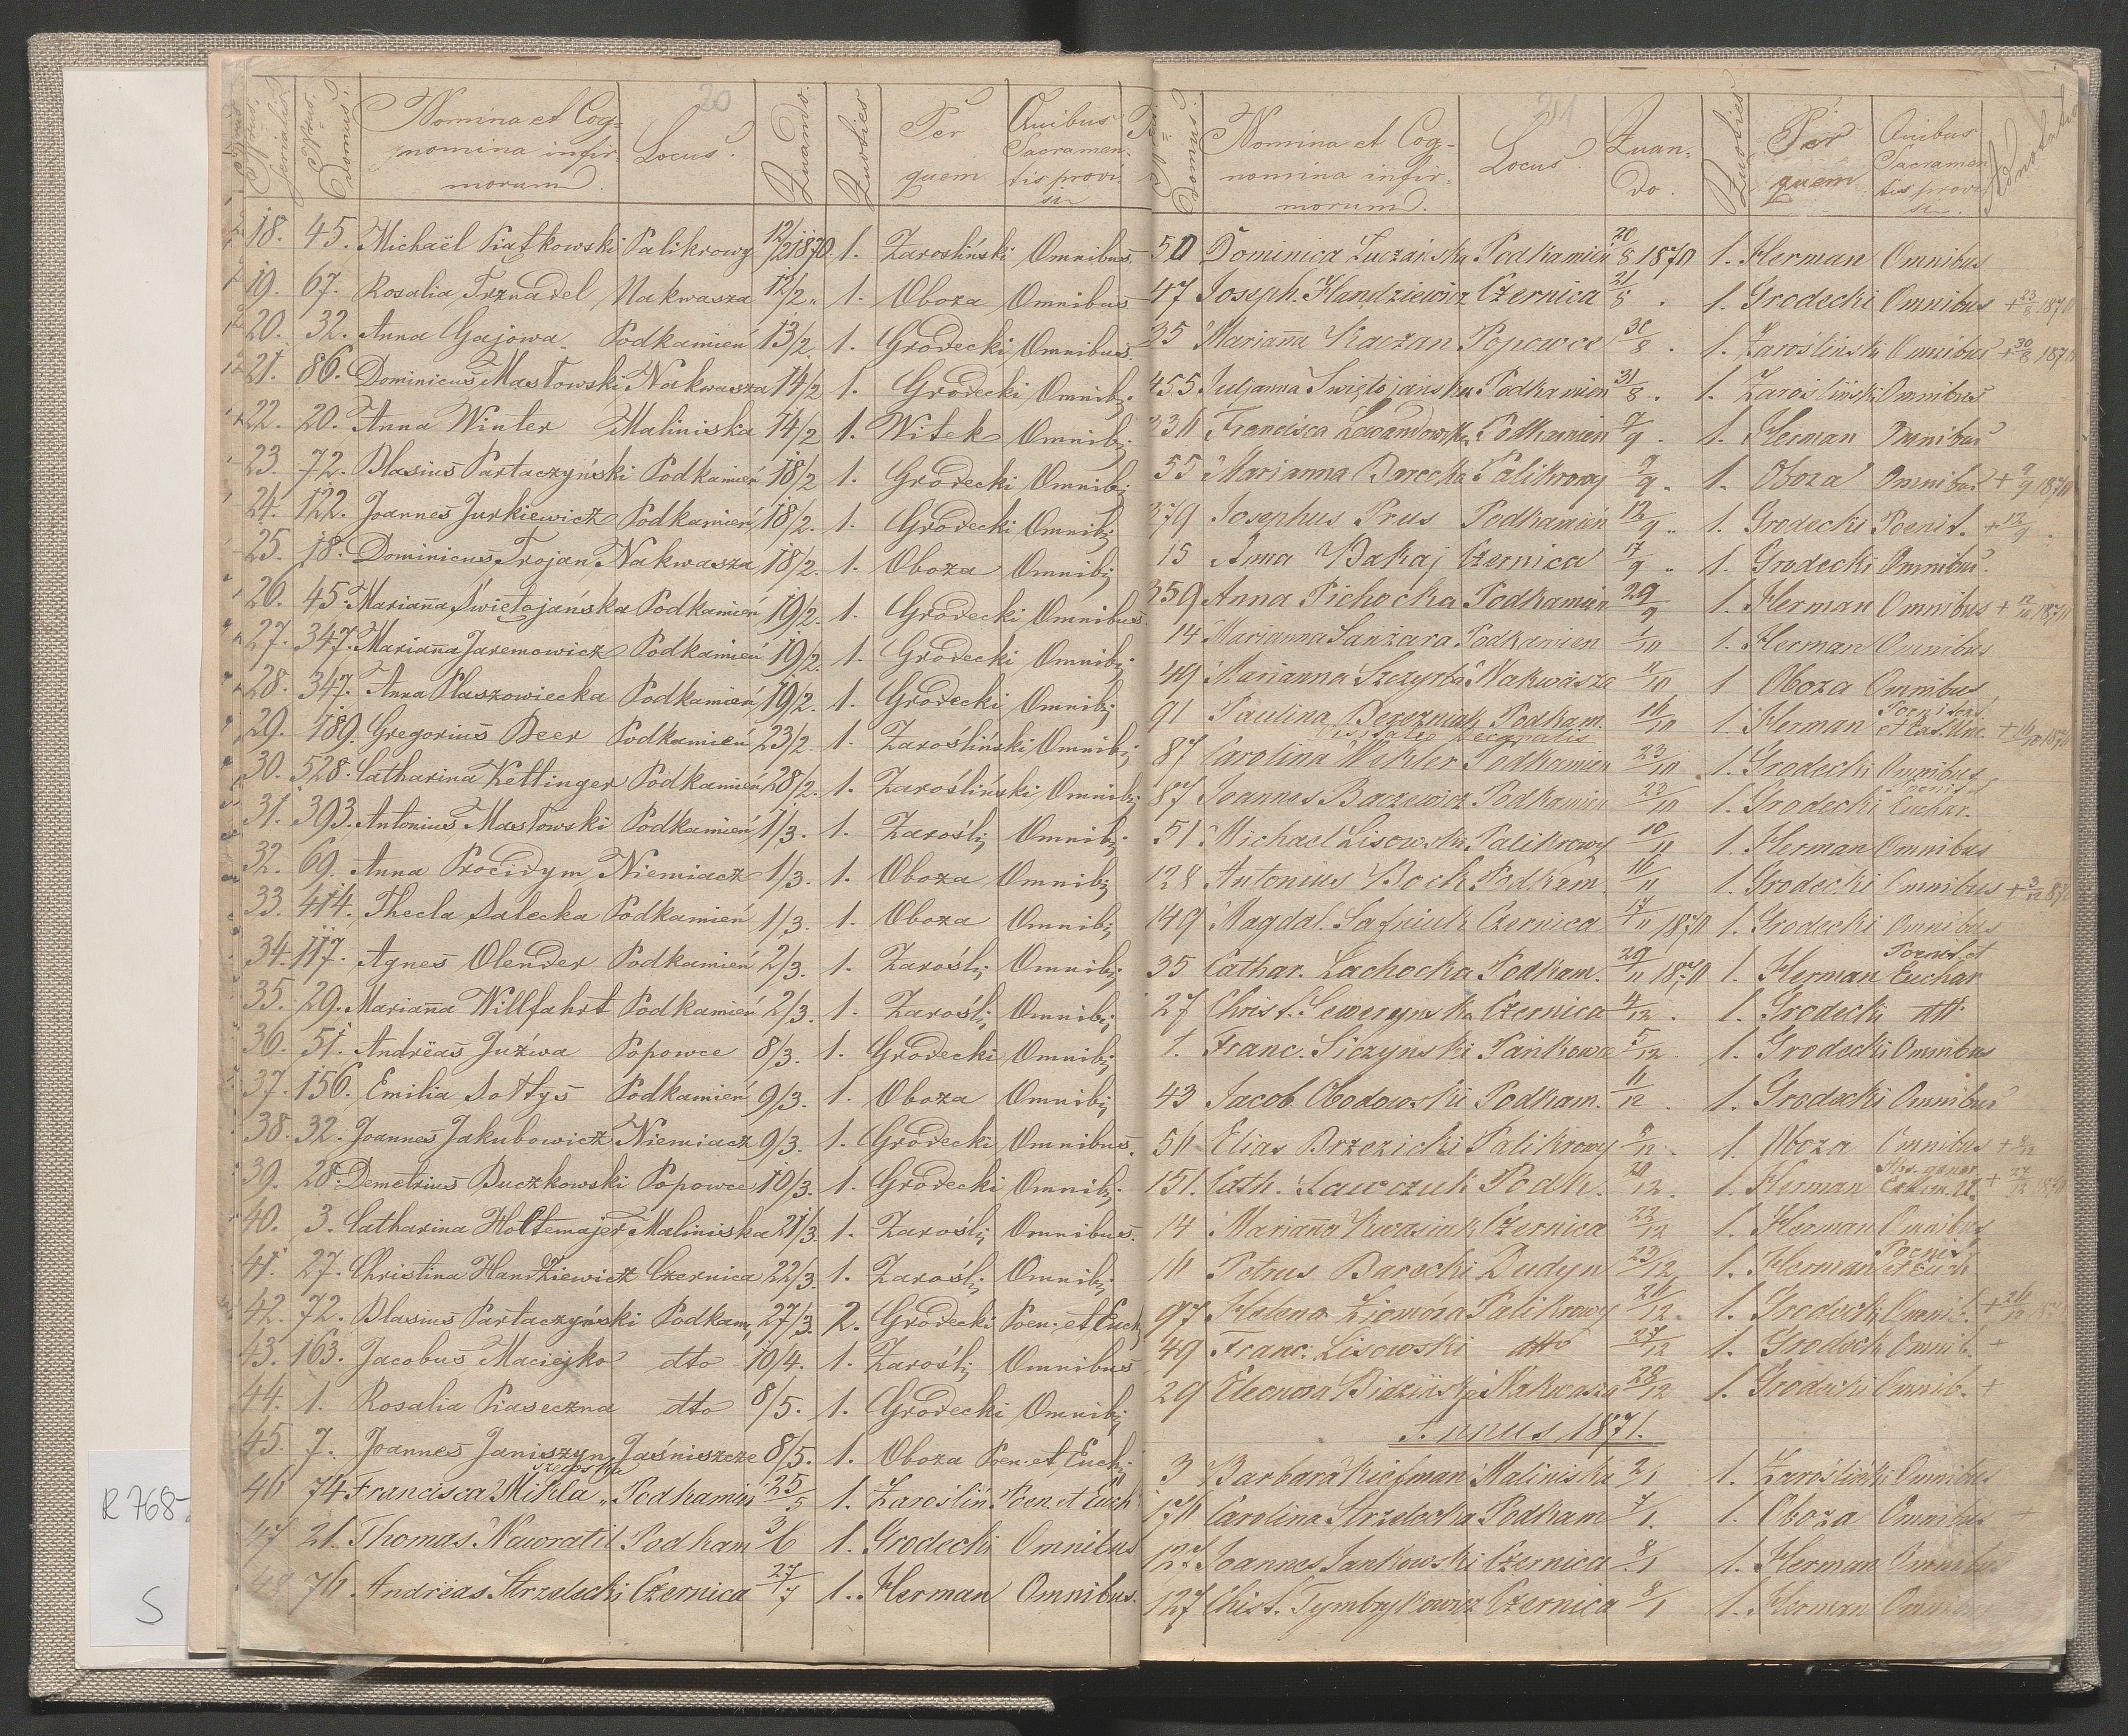 20
Nrus serialis. Nrus Domus. Nomina et Cognomina infirmorum. Locus. Quando. Quoties Per quem Quibus Sacramentis provisi
18. 45. Michaël Piatkowski Palikrowy 12/2 1870. 1. Zarosliński Omnibus.
19. 67. Rosalia Trznadel Nakwasza 12/2 " 1. Oboza Omnibus
20. 32. Anna Gajowa Podkamień 13/2. 1. Grodecki Omnibus.
21. 86. Dominicus Masłowski Nakwasza 14/2 1. Grodecki Omnibj.
22. 20. Anna Winter Maliniska 14/2 1. Witek Omnibj.
23. 72. Blasius Partaczyński Podkamień 18/2 1. Grodecki Omnibj
24. 122. Joannes Jurkiewicz Podkamień 18/2. 1. Grodecki Omnibj
25. 18. Dominicus Trojan Nakwasza 18/2. 1. Oboza Omnibj
26. 45. Mariana Świetojańska Podkamień 19/2. 1. Grodecki Omnibus
27. 347. Mariana Jaremowicz Podkamień 19/2. 1. Grodecki Omnibj
28. 347. Anna Płaszowiecka Podkamień 19/2. 1. Grodecki Omnibj
29. 189. Gregorius Beer Podkamień 23/2. 1. Zarośliński Omnibj
30. 528. Catharina Kettinger Podkamień 28/2. 1. Zarośliński Omnibj
31. 393. Antonius Masłowski Podkamień 1/3. 1. Zaroślj Omnibj
32. 69. Anna Procidym Niemiacz 1/3. 1. Oboza Omnibj
33. 414. Thecla Salecka Podkamień 1/3. 1. Oboza Omnibj
34. 117. Agnes Olender Podkamień 2/3. 1. Zaroślj Omnibj
35. 29. Mariana Willfahrt Podkamień 2/3. 1. Zaroślj Omnibj
36. 51. Andrëas Juźwa Popowce 8/3. 1. Grodecki Omnibj
37. 156. Emilia Sołtys Podkamień 9/3. 1. Oboza Omnibj
38. 32. Joannes Jakubowicz Niemiacz 9/3. 1. Grodecki Omnibus.
39. 28. Demetrius Buczkowski Popowce 10/3. 1. Grodecki Omnibj.
40. 3. Catharina Holtemajer Maliniska 21/3. 1. Zaroślj Omnibus.
41. 27. Christina Handziewicz Czernica 22/3. 1. Zaroślj Omnibj
42. 72. Blasius Partaczyński Podkam, 27/3. 2. Grodecki Poen. et Euch
43. 163. Jacobus Maciejko dto 10/4. 1. Zaroślj Omnibus
44. 1. Rosalia Piaseczna dto 8/5. 1. Grodecki Omnibj
45. 7. Joannes Janiszyn Jaśniszcze 8/5. 1. Oboza Poen. et Euch.
46 74 Francisca Mikla " Podkamień 25/5 1. Zaroślin Poen. et Euch
47 21. Thomas Nawratil Podkam 3/6 1. Grodecki Omnibus
48 76. Andrëas Strzelecki Czernica 27/7 1. Herman Omnibus.
21
Nomina et Cognomina infirmorum. Locus Quando. Quoties Per quem Quibus Sacramentis provisi. Adnotatio
50 Dominica Łuczańska Podkamień 20/8 1870 1. Herman Omnibus
47 Joseph. Handziewicz Czernica 21/8 . 1. Grodecki Omnibus + 23/8 1870
35 Mariana Kaczan Popowce 30/8 . 1. Zarośliński Omnibus + 30/8 1870
455 Juljanna Swiętojańska Podkamień 31/8 . 1. Zarośliński Omnibus
230 Francisca Lewandowska Podkamień 7/9 . 1. Herman Omnibus
55 Marjanna Barecka Palikrowy 9/9 . 1. Oboza Omnibus + 9/9 1870
379 Josephus Prus Podkamień 12/9 . 1. Grodecki Poenit. + 12/9 .
15 Anna Bakaj Czernica 17/9 " 1. Grodecki Omnibus.
359 Anna Pichocka Podkamień 29/9 1. Herman Omnibus + 12/10 1870
14 Marianna Sanżara Podkamien 1/10 1. Herman Omnibus
49 Marianna Szczyrba Nakwasza 11/10 1 Oboza Omnibus
91 Paulina Berezniak Podkam. 16/10 1. Herman Poenitent et Eas. Unc. + 16/10 1870
Visitatio Decanalis
87 Carolina Wexler Podkamień 23/10 1. Grodecki Omnibus
87 Joannes Baczewicz Podkamień 23/10 1. Grodecki Poenit et Euchar.
51 Michael Lisowski Palikrowy 10/11 1. Herman Omnibus
128 Antonius Bock Podkam. 16/11 1. Grodecki Omnibus + 3/12 870
149 Magdal. Safniuk Czernica 17/11 1870 1. Grodecki Omnibus
35 Cathar. Lachocka Podkam. 29/11 1870 1. Herman Poenit. et Euchar
27 Christ. Seweryńska Czernica 4/12 . 1. Grodecki dtt.
1. Franc. Siczyński Pańkowa 5/12 . 1. Grodecki Omnibus
43 Jacob Obodowski Podkam. 11/12 . 1. Grodecki Omnibus
50 Elias Brzezicki Palikrowy 8/12 . 1. Oboza Omnibus + 8/12
151. Cath. Sawczuk Podk. 20/12. 1. Herman Abs. gener. Extrem. U. + 27/12 1870
14 Mariana Kwasiuk Czernica 23/12 1. Herman Omnibus
10 Petrus Barecki Dudyn 23/12 1. Herman Poenit et Euch
97 Helena Ziomóra Palikrowy 26/12. 1. Grodecki Omnib. + 26/12 1870
49 Franc. Lisowski dtto 27/12 1. Grodecki Omnib. +
29 Eleonora Bidzińska Nakwasza 28/12 1. Grodecki Omnib. +
Annus 1871.
3 Barbara Kielman Maliniska 2/1 1. Zarośliński Omnibus
170 Carolina Strzelecka Podkam 7/1. 1. Oboza Omnibus +
127 Joannes Jankowski Czernica 8/1 1. Herman Omnibus
127 Christ. Tymbrykowicz Czernica 8/1 1. Herman Omnibus
R 768-
S